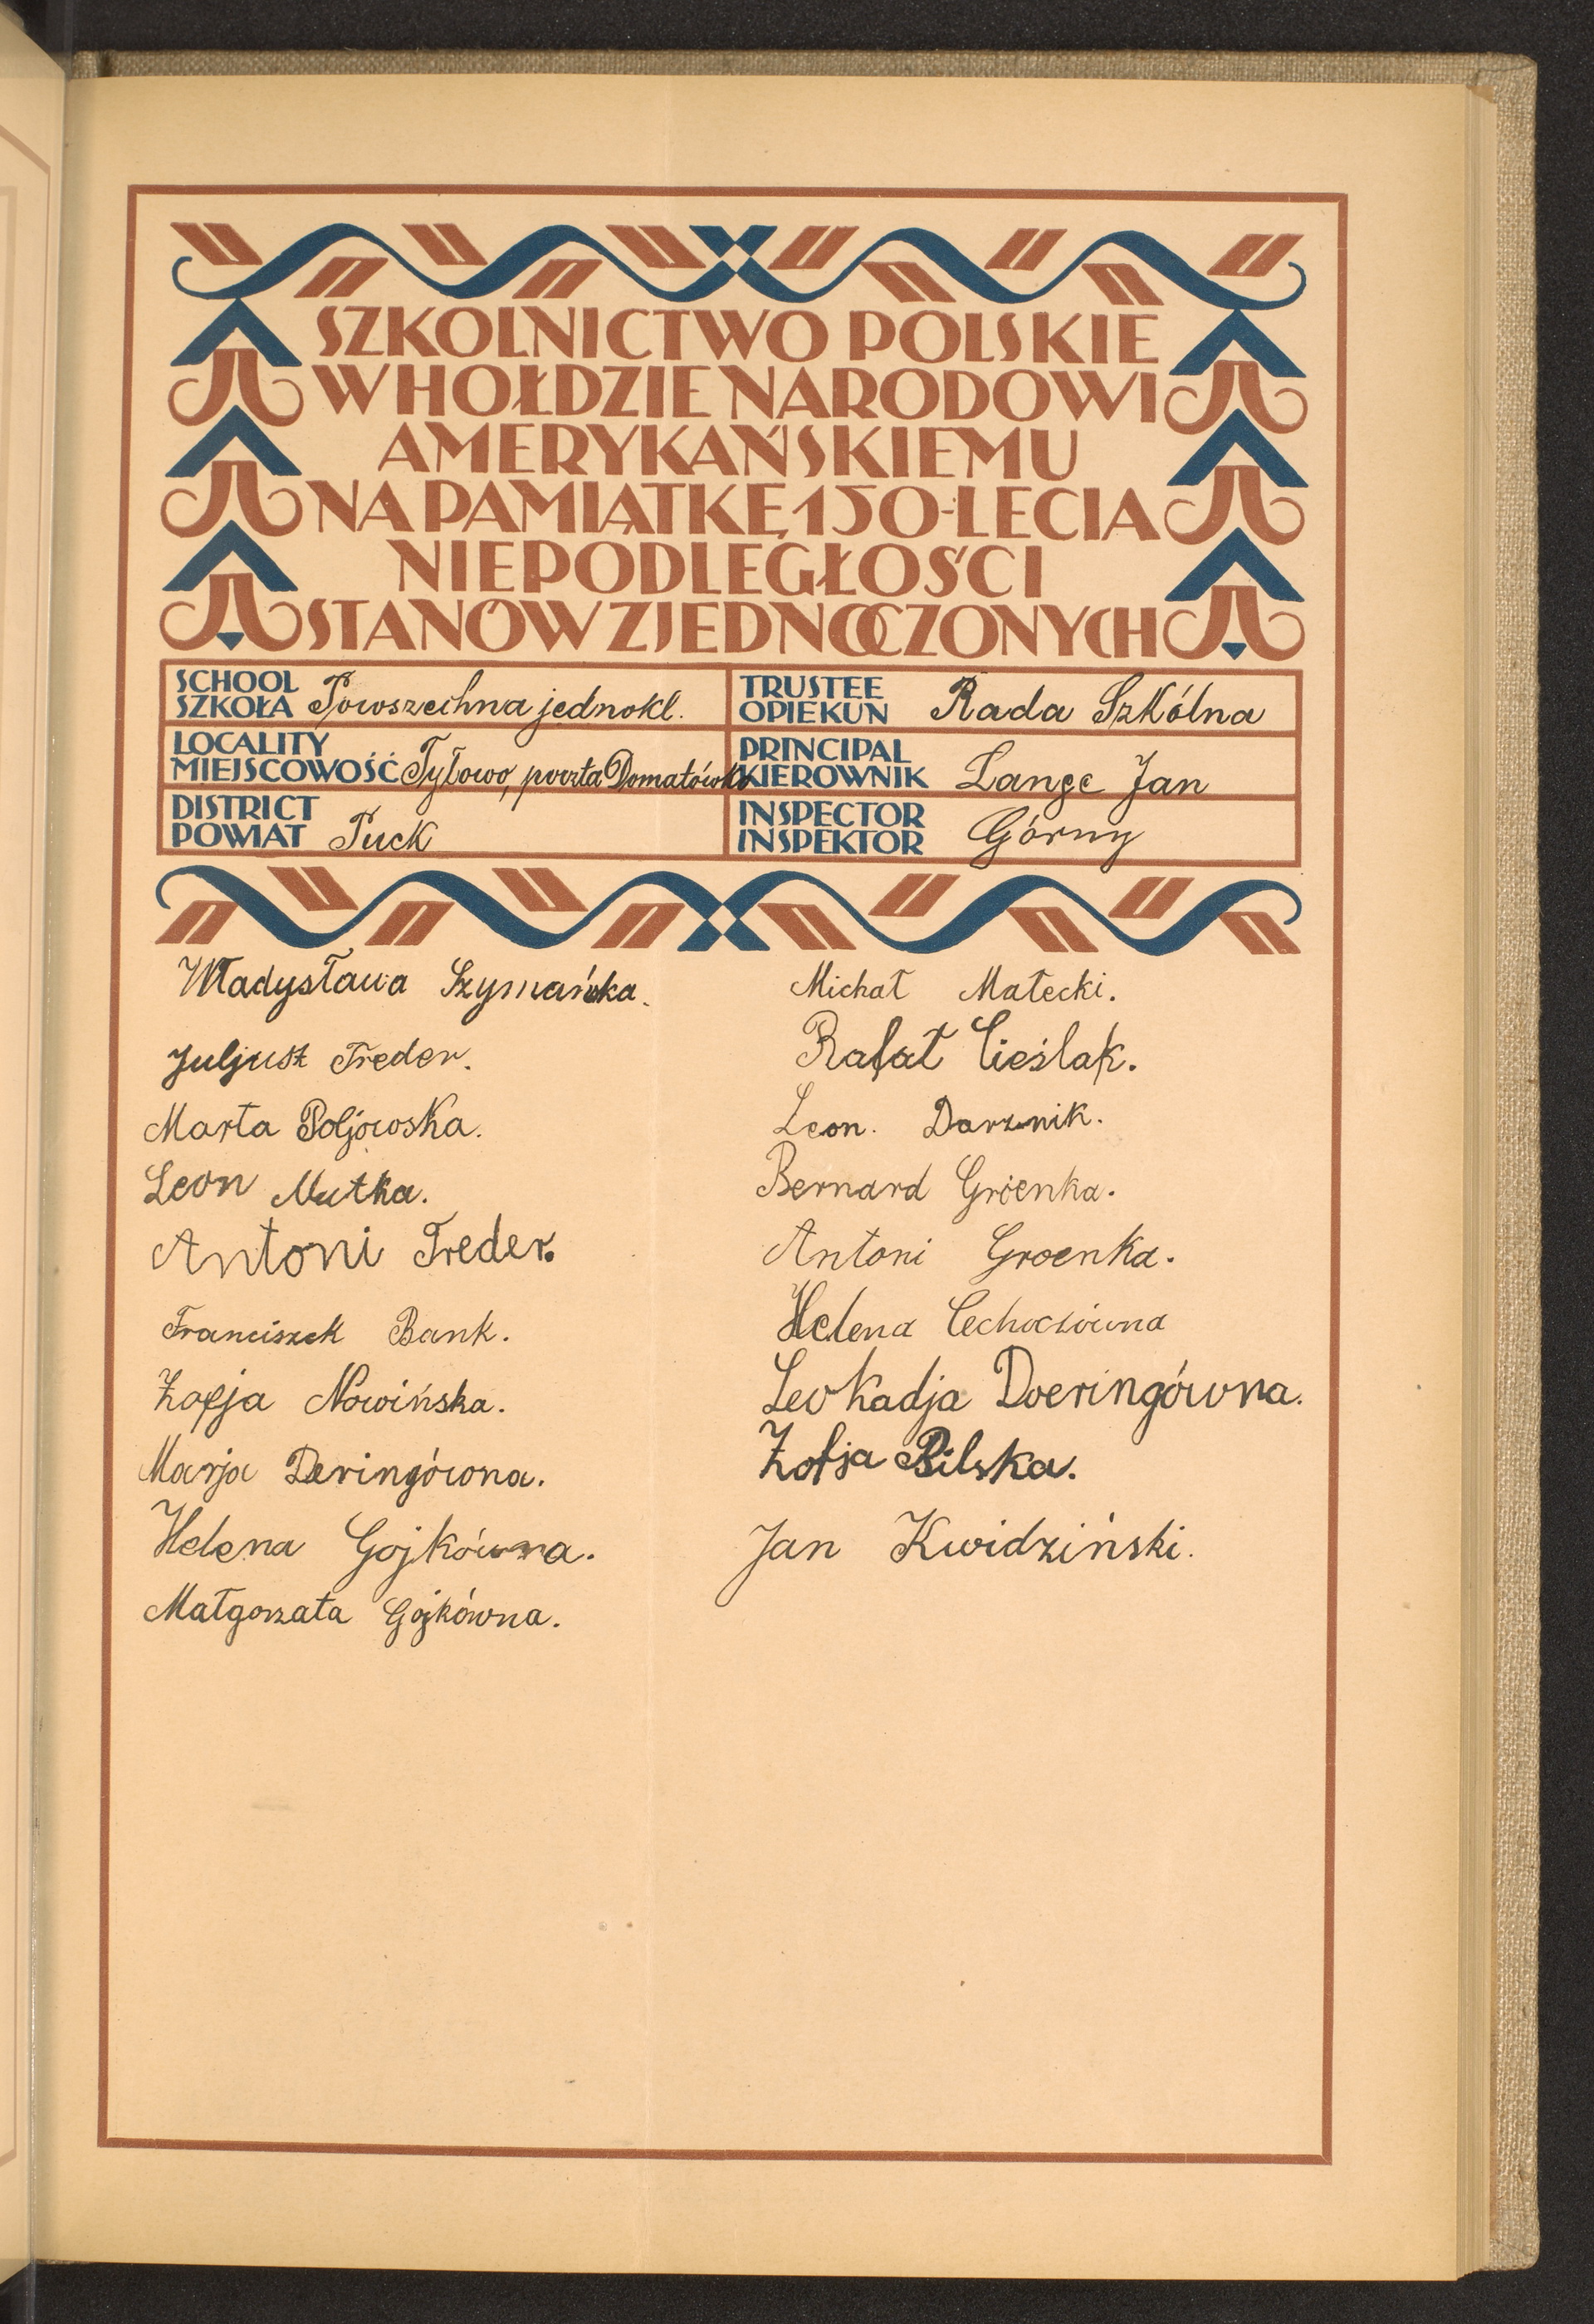 SZKOLNICTWO POLSKIE
W HOŁDZIE NARODOWI
AMERYKAŃSKIEMU
NA PAMIĄTKĘ 150-LECIA
NIEPODLEGŁOŚCI
STANÓW ZJEDNOCZONYCH
SCHOOL
SZKOŁA Powszechna jednokl.
TRUSTEE
OPIEKUN Rada Szkólna
LOCALITY
MIEJSCOWOŚĆ Tyłowo, poczta Domatówko
PRINCIPAL
KIEROWNIK Lange Jan
DISTRICT
POWIAT Puck
INSPECTOR
INSPEKTOR Górny
Władysława Szymańska.
Juljusz Treder.
Marta Poljowska.
Leon Mutka.
Antoni Treder.
Franciszek Bank.
Zofja Nowińska.
Marja Deringówna.
Helena Gojkówna.
Małgorzata Gojkówna.
Michał Małecki.
Rafał Cieślak.
Leon. Darznik.
Bernard Groenka.
Antoni Groenka.
Helena Cechoczówna
Leokadja Doeringówna.
Zofja Bilska.
Jan Kwidziński.